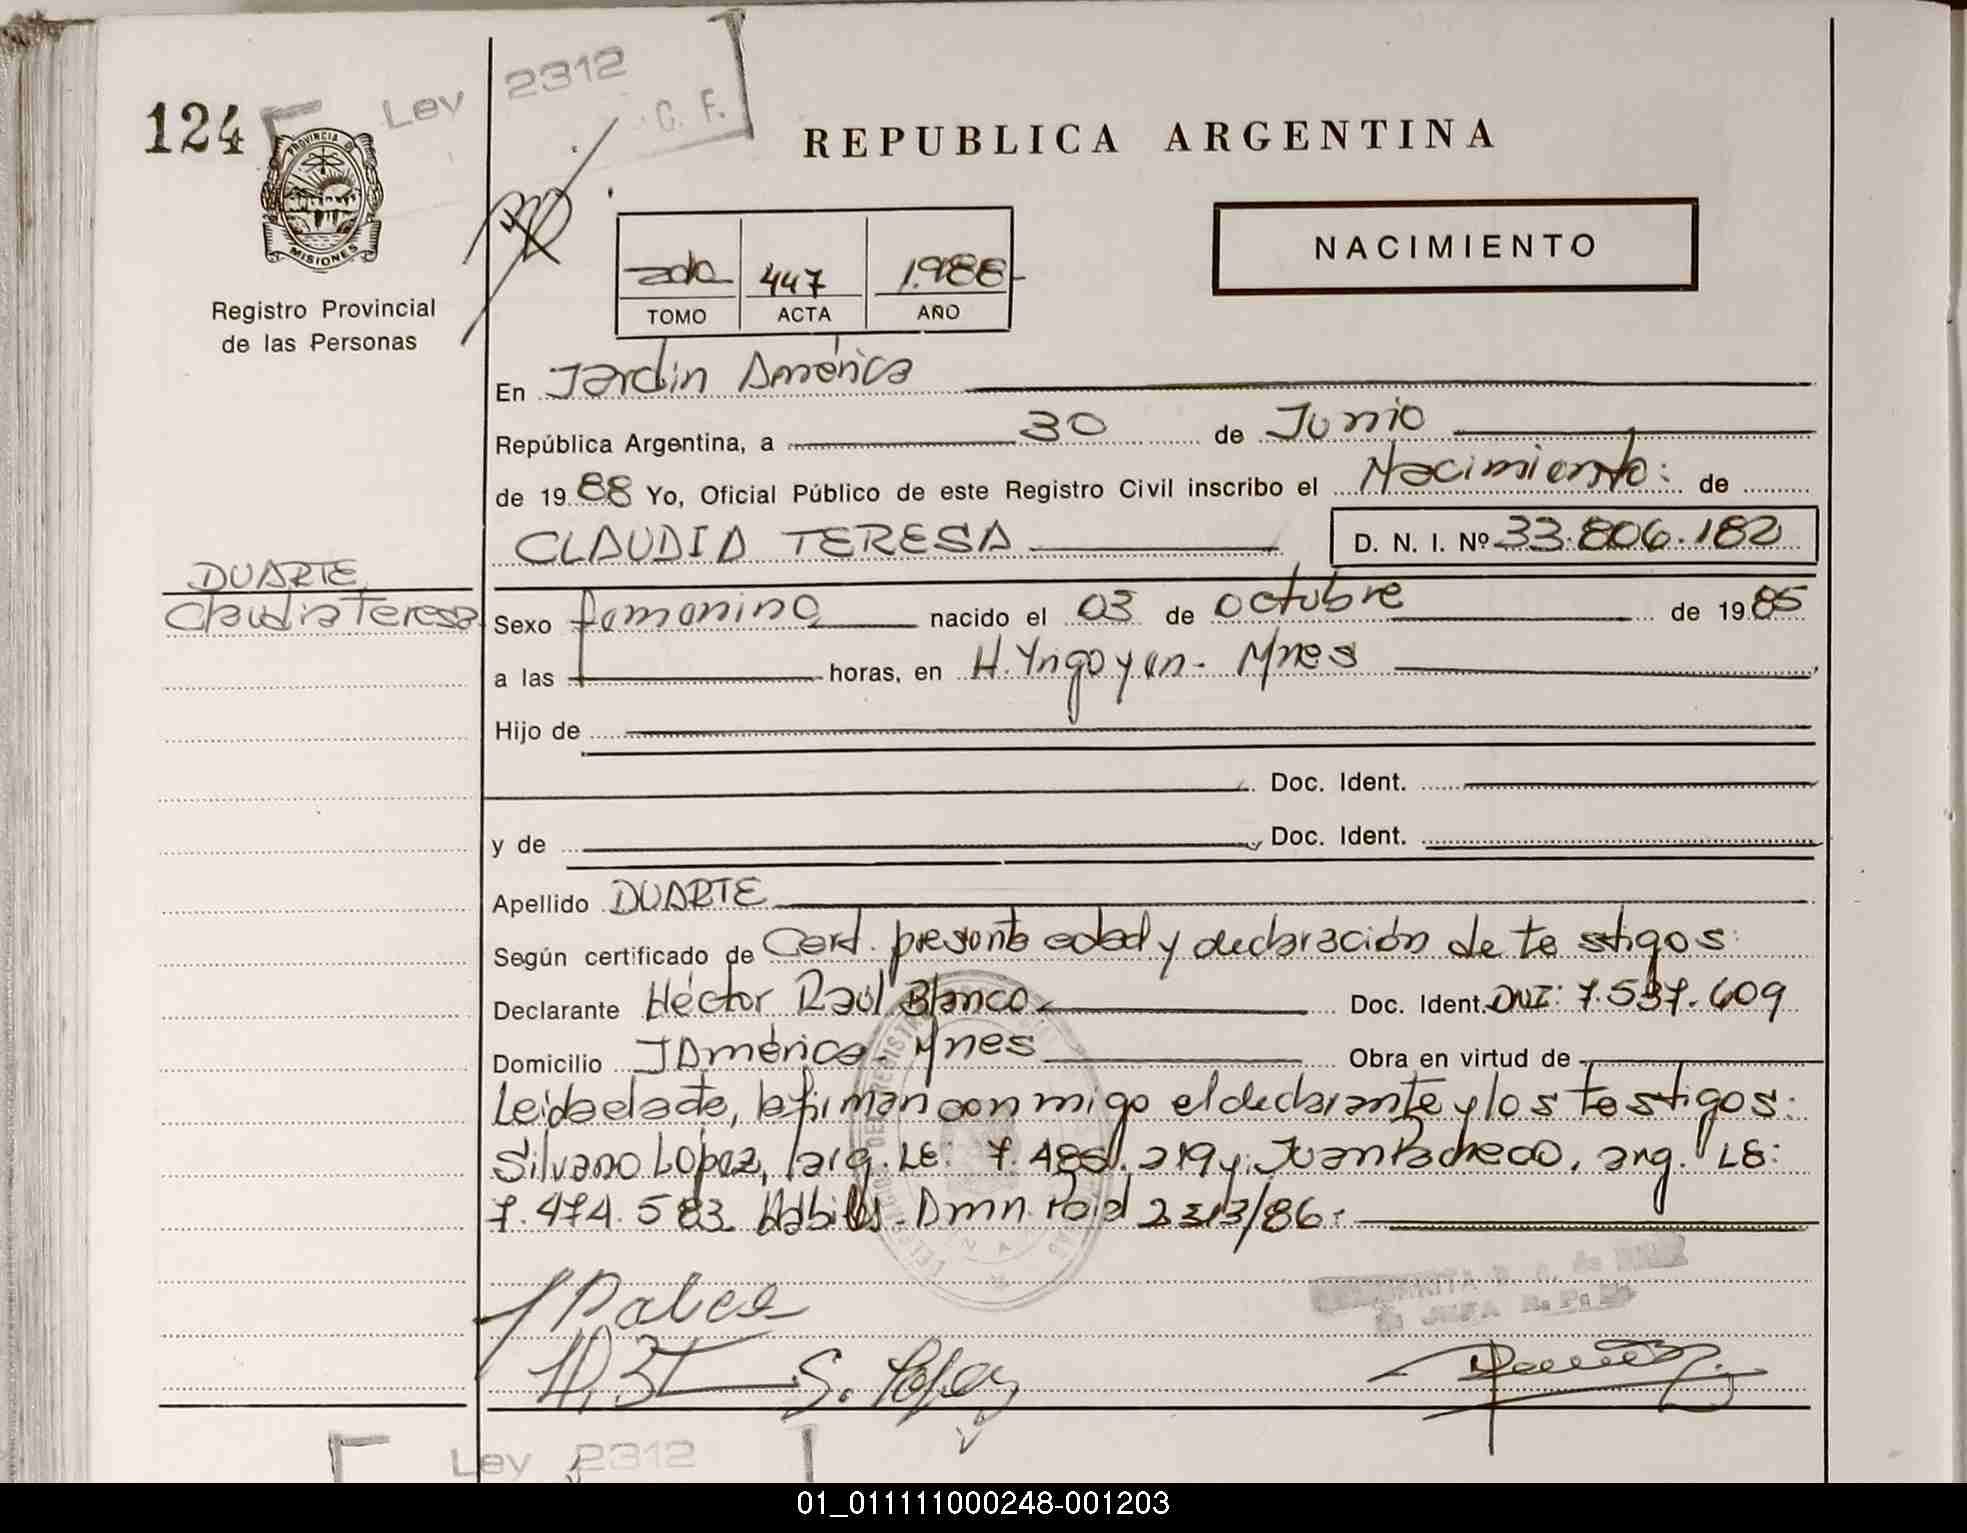 124
Ley 2312
G. F.
PROVINCIA DE
MISIONES
Registro Provincial
de las Personas
REPUBLICA ARGENTINA
NACIMIENTO
2do 447 1.988
TOMO ACTA AÑO
En Jardín América
República Argentina, a 30 de Junio
de 1988 Yo, Oficial Público de este Registro Civil inscribo el Nacimiento: de
CLAUDIA TERESA D. N. I. Nº 33.806.182
DUARTE
Claudia Teresa
Sexo femenino nacido el 03 de octubre de 1985
a las horas, en H. Yrigoyen - Mnes
Hijo de
Doc. Ident.
y de Doc. Ident.
Apellido DUARTE
Según certificado de Cert. presunta edad y declaración de testigos:
Declarante Héctor Raúl Blanco Doc. Ident. DNI: 7.537.609
Domicilio J América - Mnes Obra en virtud de
Leida el acta, la firman conmigo el declarante y los testigos:
Silvano López, arg. LE: 7.485.219 y Juan Pacheco, arg. LE:
7.474.583 Hábiles -
S. Lopez
Ley 2312
01_011111000248-001203